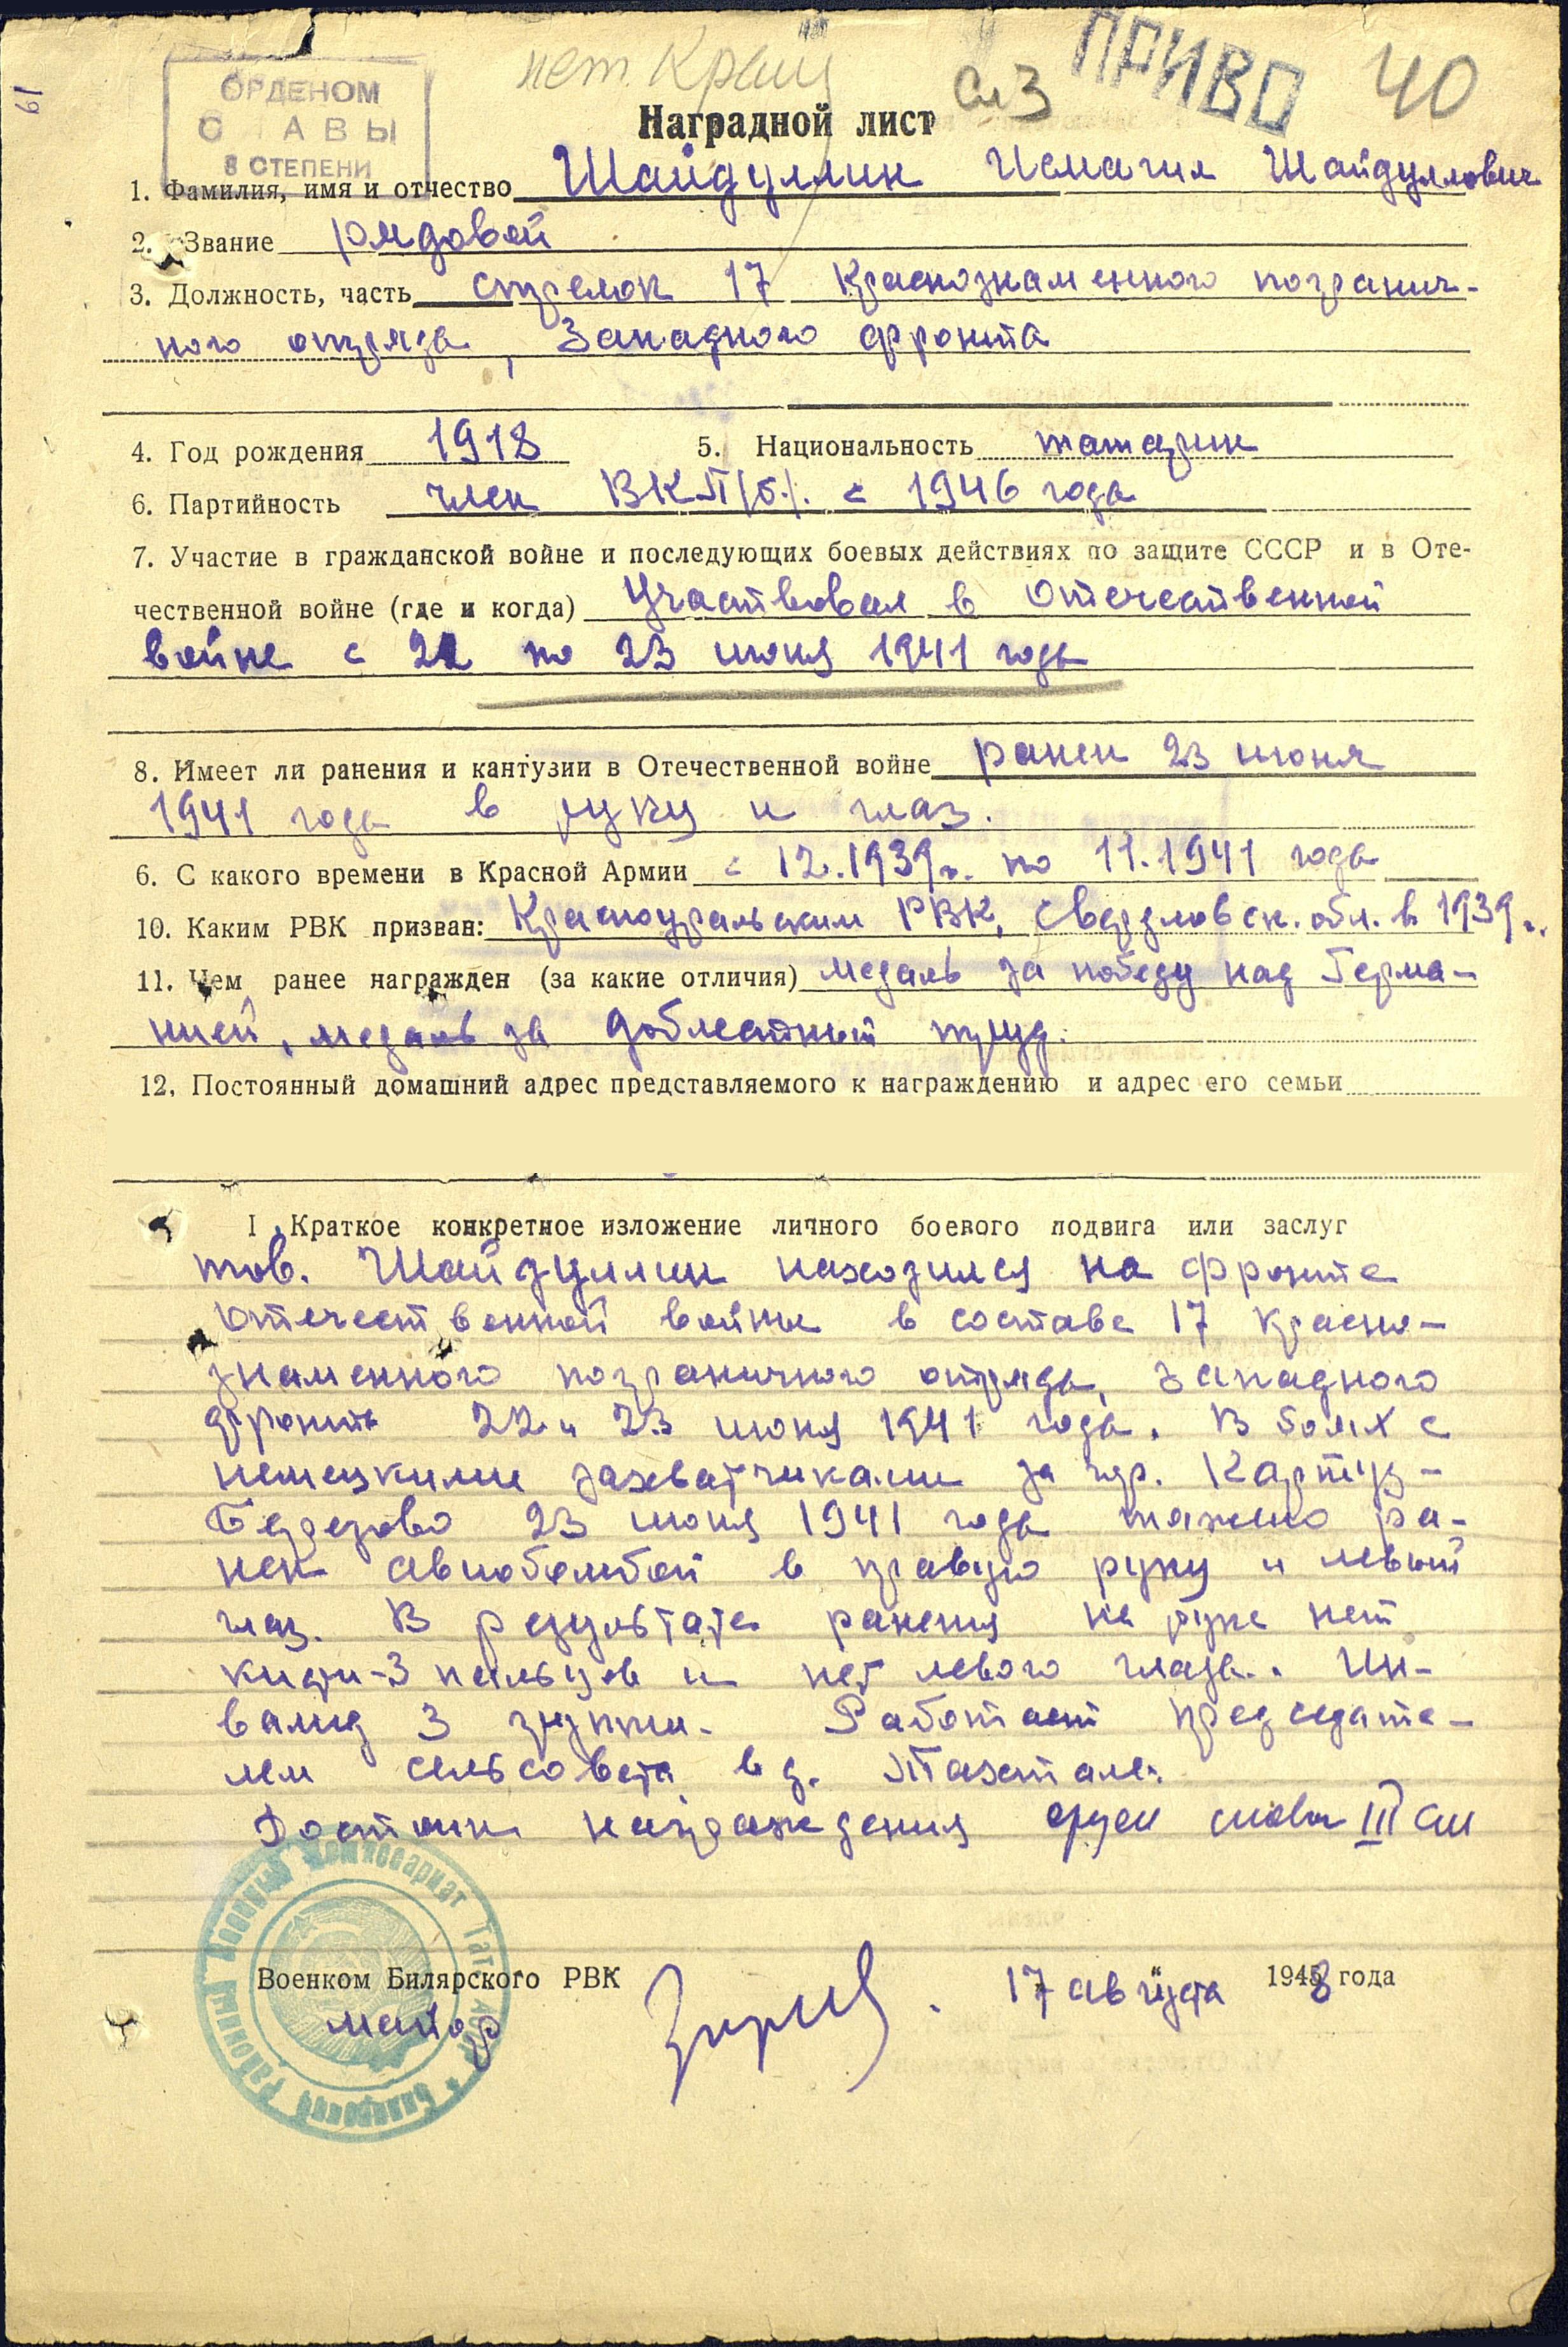 61
ОРДЕНОМ
С АВЫ
3 СТЕПЕНИ
нет.
Сл3
ПРИВО
40
Наградной лист
1. Фамилия, имя и отчество Шайдуллин Исмагил Шайдуллович
2. Звание рядовой
3. Должность, часть стрелок 17 Краснознаменного погранич-
ного отряда, Западного фронта
4. Год рождения 1918 5. Национальность татарин
6. Партийность член ВКП(б). с 1946 года
7. Участие в гражданской войне и последующих боевых действиях по защите СССР и в Оте-
чественной войне (где и когда) Участвовал в Отечественной
войне с 22 по 23 июня 1941 года
8. Имеет ли ранения и кантузии в Отечественной войне ранен 23 июня
1941 года в руку и глаз.
6. С какого времени в Красной Армии с 12.1939г. по 11.1941 года
10. Каким РВК призван: Красноуральским РВК, Свердловск. обл. в 1939 г.
11. Чем ранее награжден (за какие отличия) медаль за победу над Герма-
нией, медаль за доблестный труд.
12. Постоянный домашний адрес представляемого к награждению и адрес его семьи
I Краткое конкретное изложение личного боевого подвига или заслуг
тов. Шайдуллин находился на фронте
Отечественной войны в составе 17 красно-
знаменного пограничного отряда, Западного
фронта 22 и 23 июня 1941 года. В боях с
немецкими захватчиками за гор. Картуз-
Березово 23 июня 1941 года тяжело ра-
нен авиобомбой в правую руку и левый
глаз. В результате ранения на руке нет
кисти-3 пальцев и нет левого глаза. Ин-
валид 3 группы. Работает председате-
лем сельсовета в д.
Достоин награждения орден славы III ст
Военком Билярского РВК 17 августа 1948 года
майор
Билярский Районный Военный Комиссариат Тат. АССР